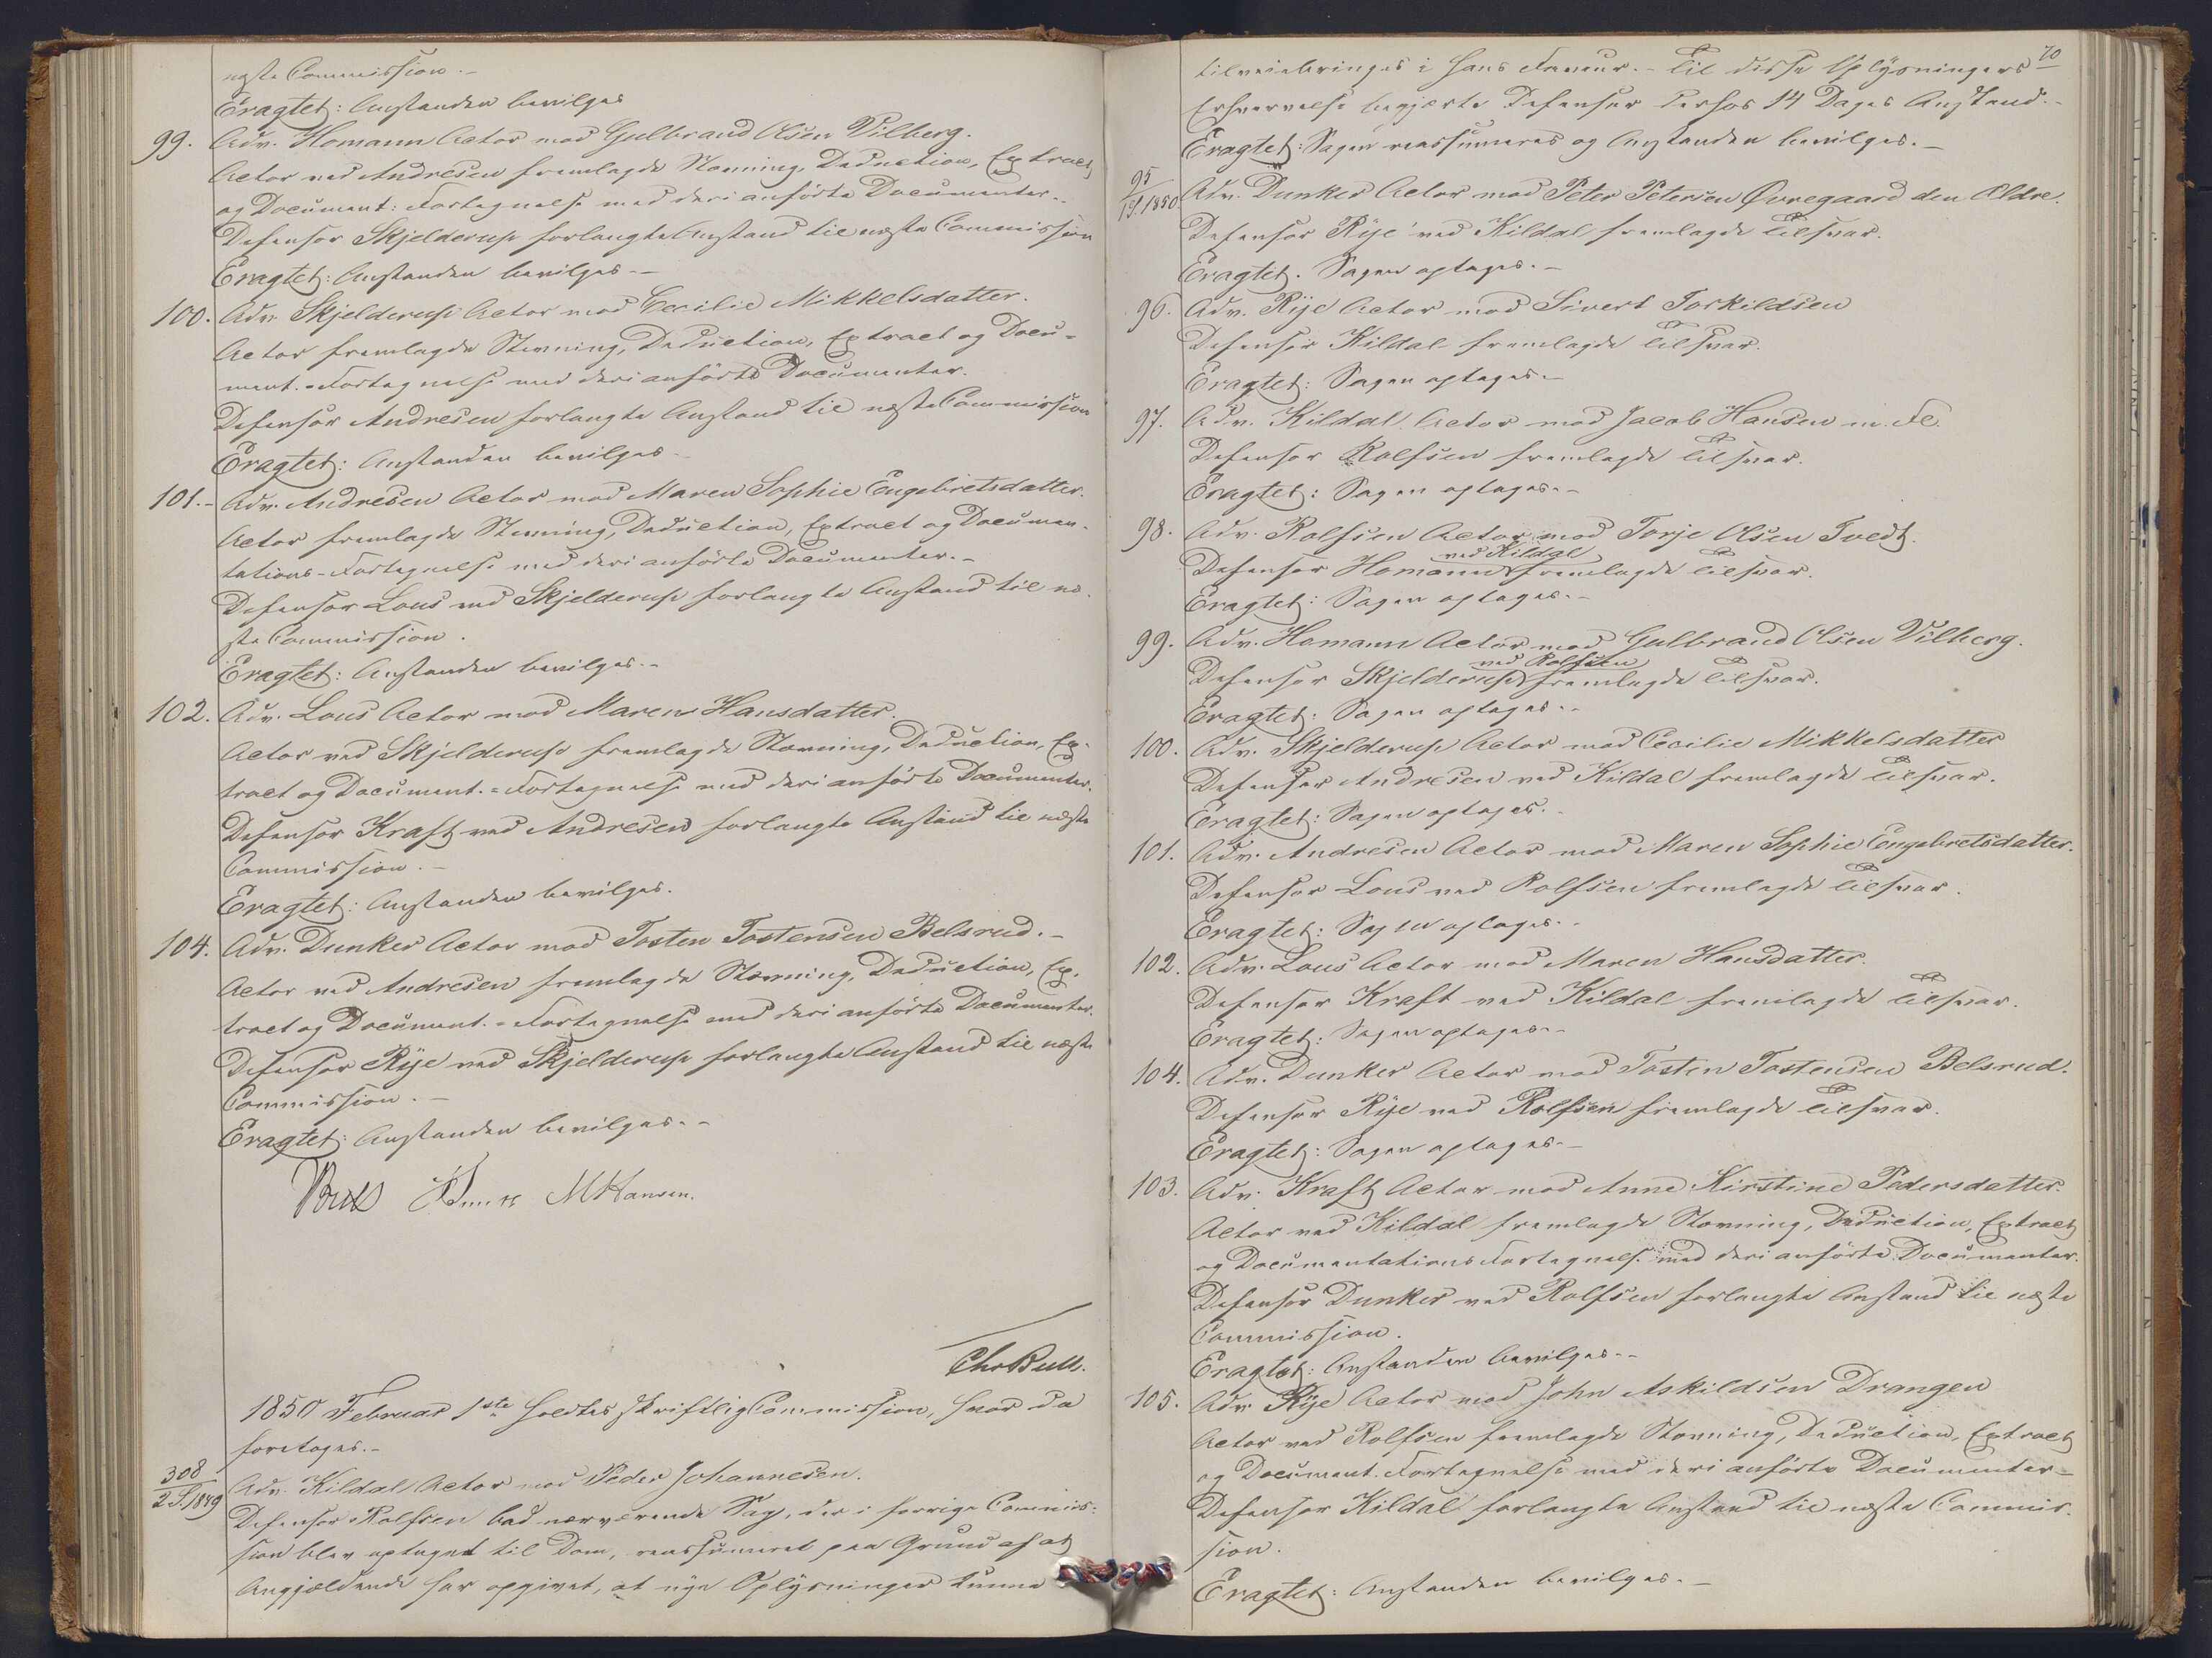 næste Commission.-
Eragtet: Anstanden bevilges
99. Adv. Homann Actor mod Gulbrand Olsen Vilberg.
Actor ved Andresen fremlagde Stevning, Deduction, Extract
og Document: Fortegnelse med deri anførte Documenter.-
Defensor Skjelderup forlangte Anstand til næste Commission
Eragtet: Anstanden bevilges.-
100. Adv. Skjelderup Actor mod Cecilie Mikkelsdatter.
Actor fremlagde Stevning, Deduction, Extract og Docu-
ment.-Fortegnelse med deri anførte Documenter.
Defensor Andresen forlangte Anstand til næste Commission
Eragtet: Anstanden bevilges.-
101.- Adv. Andresen Actor mod Maren Sophie Engebretsdatter.
Actor fremlagde Stevning, Deduction, Extract og Documen-
tations-Fortegnelse med deri anførte Documenter.-
Defensor Lous ved Skjelderup forlangte Anstand til næ-
ste Commission.
Eragtet: Anstanden bevilges.-
102. Adv. Lous Actor mod Maren Hansdatter.
Actor ved Skjelderup fremlagde Stevning, Deduction, Ex-
tract og Document.-Fortegnelse med deri anførte Documenter.
Defensor Kraft ved Andresen forlangte Anstand til næste
Commission.-
Eragtet: Anstanden bevilges.
104. Adv. Dunker Actor mod Tosten Tostensen Belsrud.-
Actor ved Andresen fremlagde Stevning, Deduction, Ex-
tract og Document.-Fortegnelse med deri anførte Documenter.
Defensor Rije ved Skjelderup forlangte Anstand til næste
Commission.-
Eragtet: Anstanden bevilges.-
Bull MHansen.
Chr Bull.
1850 Februar 1ste holdtes skriftlig Commission, hvor da
foretoges.-
308/2 S. 1849 Adv. Kildal Actor mod Peder Johannesen.
Defensor Rolfsen bad nærværende Sag, der i forrige Commis-
sion blev optaget til Dom, reassumeret paa Grund af at
Angjældende har opgivet, at nye Oplysninger kunne
70
tilveiebringes i hans Faveur.- Til disse Oplysningers
Erhvervelse begjerte Defensor 14 Dages Anstand.-
Eragtet: Sagen reassumeres og Anstanden bevilges.-
95/1 S. 1850 Adv. Dunker Actor mod Peter Petersen Øvregaard den Ældre.
Defensor Rije ved Kildal fremlagde Tilsvar.
Eragtet. Sagen optages.-
96. Adv. Rije Actor mod Sivert Torkildsen
Defensor Kildal fremlagde Tilsvar.
Eragtet: Sagen optages.-
97. Adv. Kildal Actor mod Jacob Hansen m. Fl.
Defensor Rolfsen fremlagde Tilsvar.
Eragtet: Sagen optages.-
98. Adv. Rolfsen Actor mod Torje Olsen Tvedt.
Defensor Homann ved Kildal fremlagde Tilsvar.
Eragtet: Sagen optages.-
99. Adv. Homann Actor mod Gulbrand Olsen Vilberg.
Defensor Skjelderup ved Rolfsen fremlagde Tilsvar.
Eragtet: Sagen optages.-
100. Adv. Skjelderup Actor mod Cecilie Mikkelsdatter
Defensor Andresen ved Kildal fremlagde Tilsvar.
Eragtet: Sagen optages.-
101. Adv. Andresen Actor mod Maren Sophie Engebretsdatter.
Defensor Lous ved Rolfsen fremlagde Tilsvar.
Eragtet: Sagen optages.-
102. Adv. Lous Actor mod Maren Hansdatter.
Defensor Kraft ved Kildal fremlagde Tilsvar.
Eragtet: Sagen optages.-
104. Adv. Dunker Actor mod Tosten Tostensen Belsrud.
Defensor Rije ved Rolfsen fremlagde Tilsvar.
Eragtet: Sagen optages.-
103. Adv. Kraft Actor mod Anne Kirstine Pedersdatter.
Actor ved Kildal fremlagde Stevning, Deduction, Extract
og Documentations Fortegnelse med deri anførte Documenter.
Defensor Dunker ved Rolfsen forlangte Anstand til næste
Commission.
Eragtet: Anstanden bevilges.-
105. Adv. Rije Actor mod John Askildsen Drangen
Actor ved Rolfsen fremlagde Stevning, Deduction, Extract
og Document. Fortegnelse med deri anførte Documenter-
Defensor Kildal forlangte Anstand til næste Commis-
sion.
Eragtet: Anstanden bevilges.-